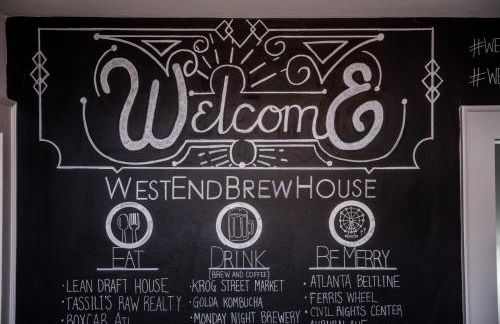 Welcome
WestEndBrewHouse
EAT
DRINK
BREW AND COFFEE
BE MERRY
• LEAN DRAFT HOUSE
• TASSILI'S RAW REALTY
• BOXCAR ATL
• KROG STREET MARKET
• GOLDA KOMBUCHA
• MONDAY NIGHT BREWERY
• ATLANTA BELTLINE
• FERRIS WHEEL
• CIVIL RIGHTS CENTER
#WE
#WE